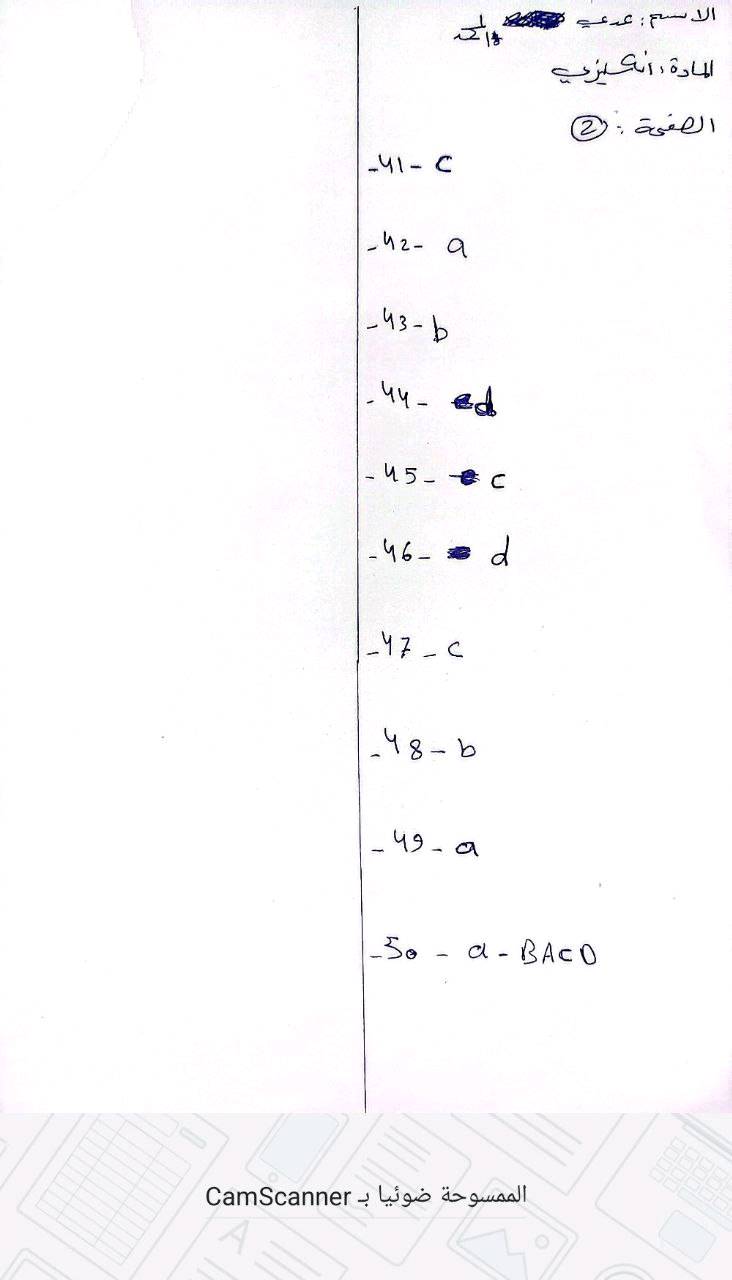 الاسم: عدي
المادة: انكليزي
الصفحة: 2
-41- c
-42- a
-43- b
-44- d
-45- c
-46- d
-47- c
-48- b
-49- a
-50- a - BACD
الممسوحة ضوئيا بـ CamScanner